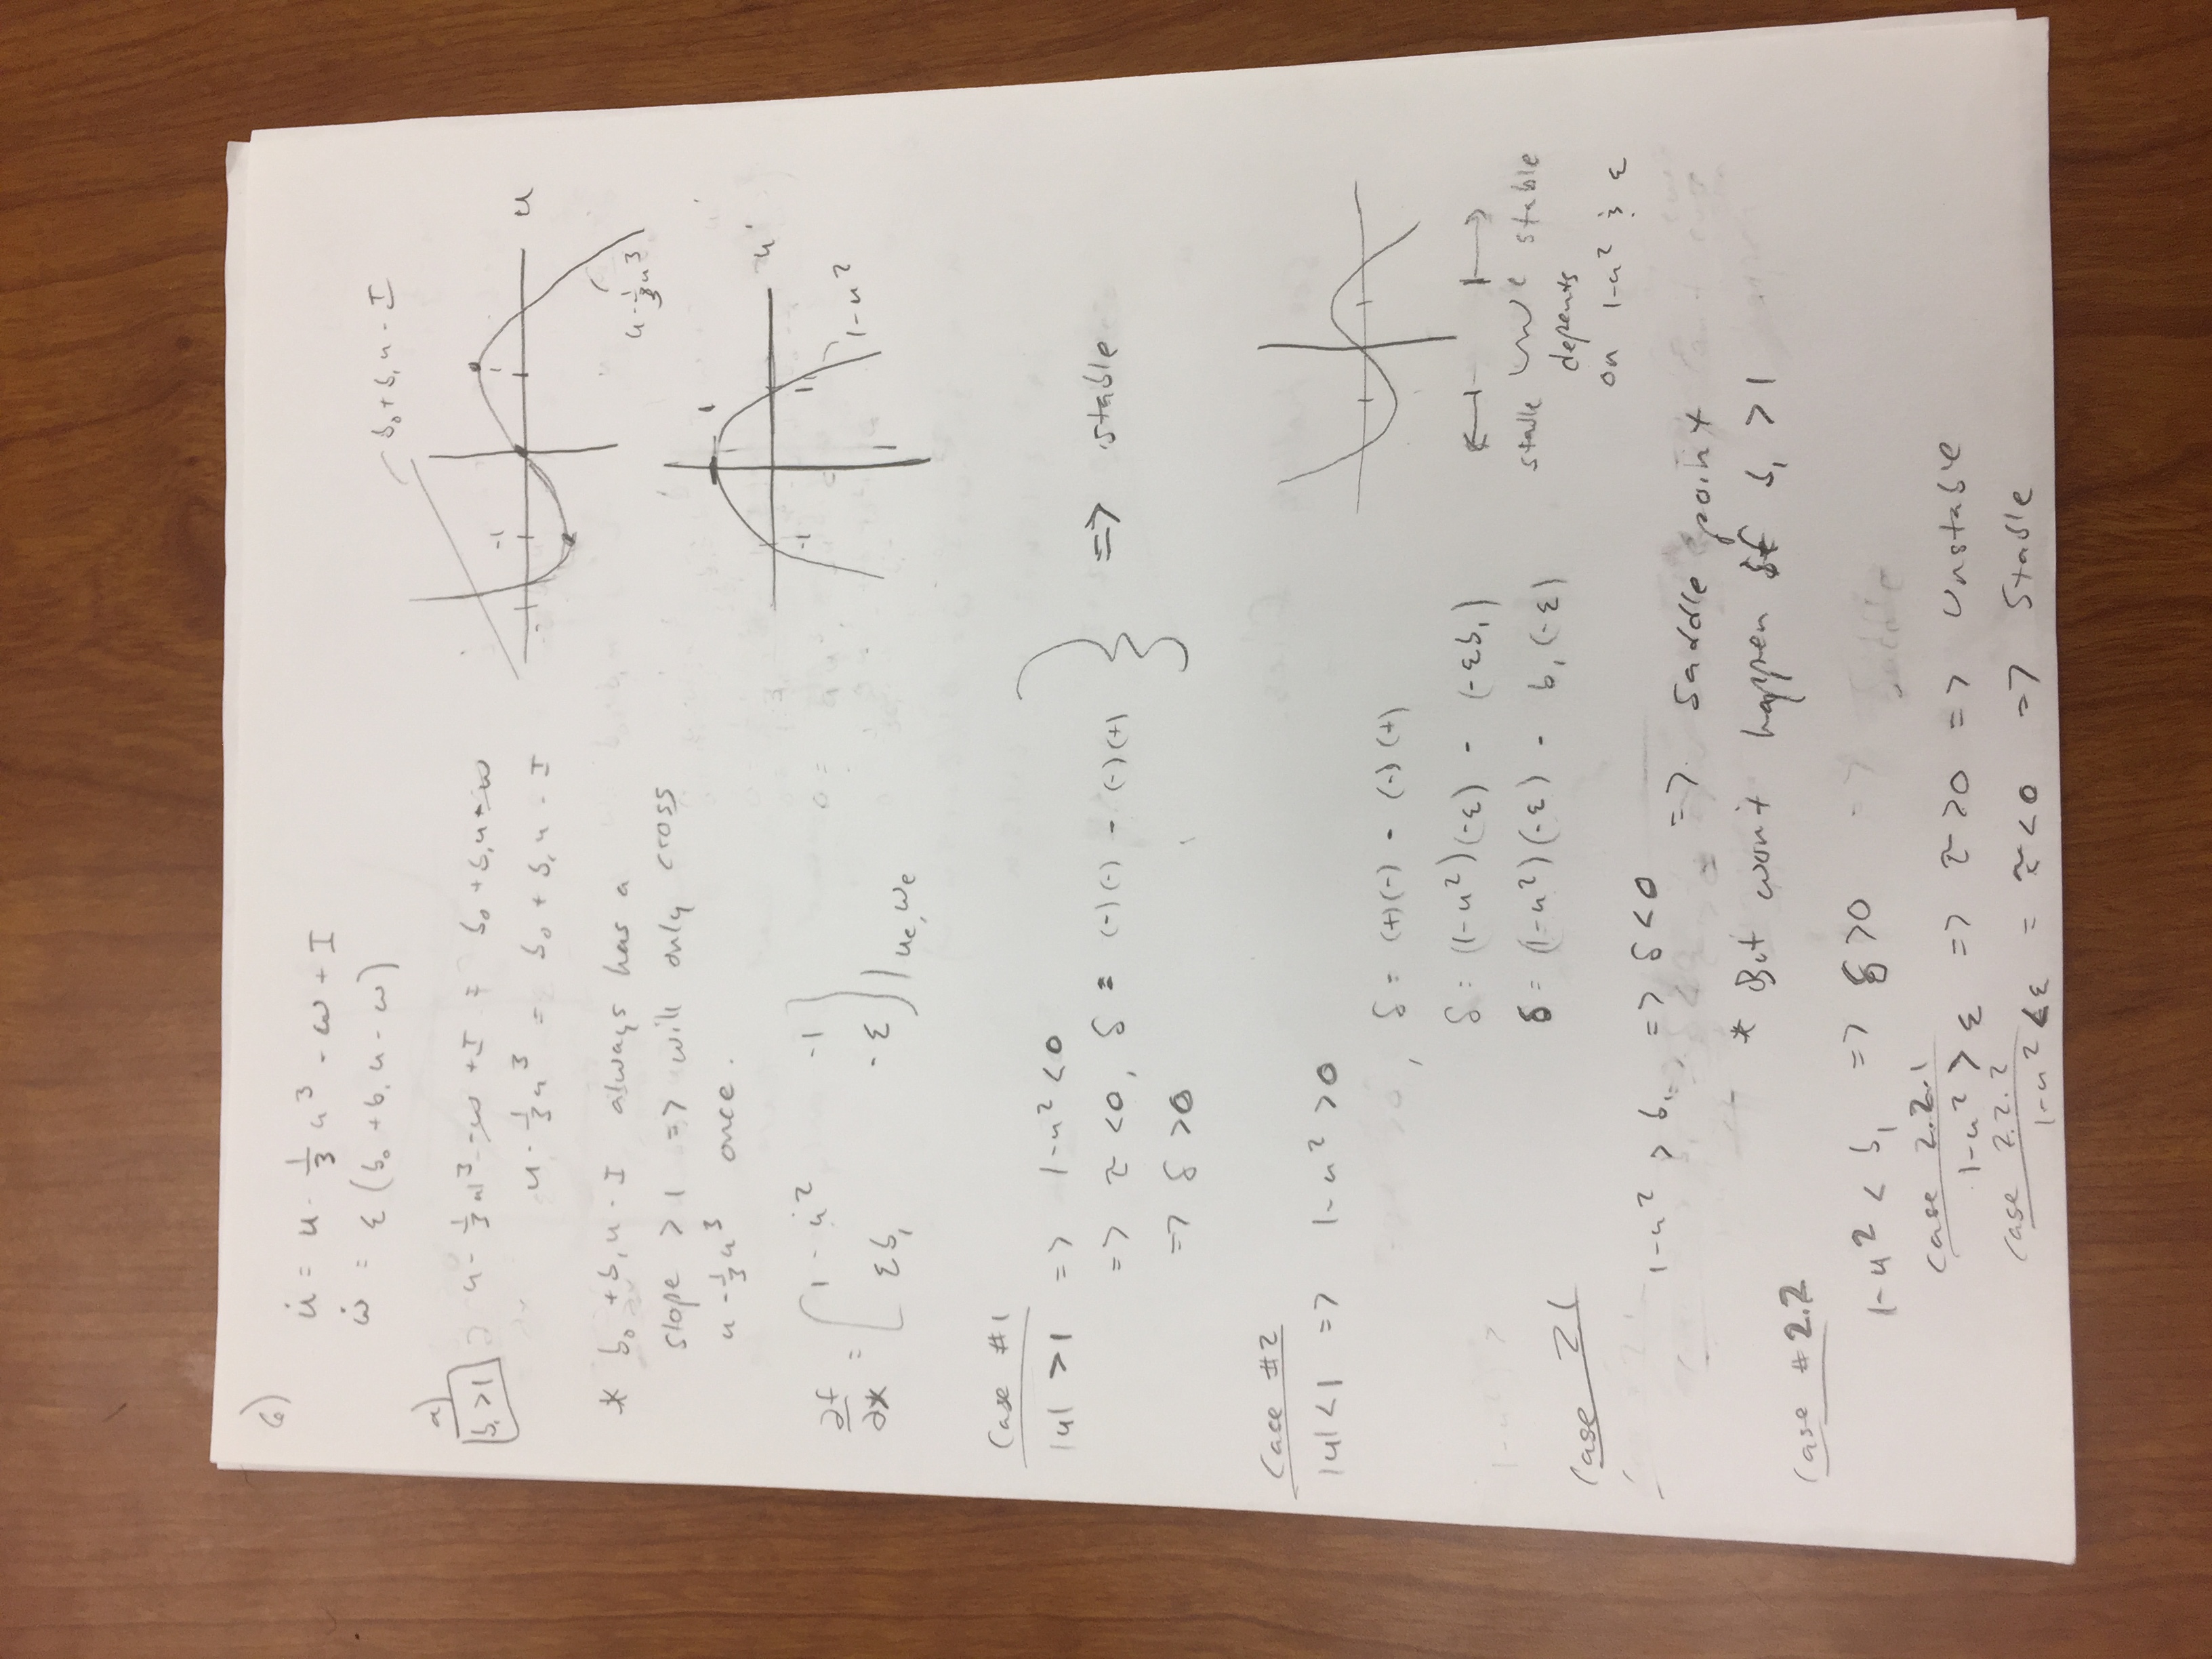 6)
u̇ = u - 1/3 u³ - ω + I
ω̇ = ε (b₀ + b₁u - ω)
a)
b₁ > 1
u - 1/3 u³ - ω + I = b₀ + b₁u - ω
u - 1/3 u³ = b₀ + b₁u - I
b₀ + b₁u - I
-1
1
u
u - 1/3 u³
* b₀ + b₁u - I always has a
slope > 1 => will only cross
u - 1/3 u³ once.
1
u
-1
1
1-u²
∂f/∂x = [ 1-u² -1
εb₁ -ε ] | ue, ωe
Case #1
|u| > 1 => 1-u² < 0
=> τ < 0, δ = (-)(-) - (-)(+)
=> δ > 0
=> stable
Case #2
|u| < 1 => 1-u² > 0
, δ = (+)(-) - (-)(+)
δ = (1-u²)(-ε) - (-εb₁)
δ = (1-u²)(-ε) - b₁(-ε)
stable stable
depends
on 1-u² & ε
Case 2.1
1-u² > b₁ => δ < 0
=> Saddle point
* But won't happen if b₁ > 1
Case #2.2
1-u² < b₁ => δ > 0
Case 2.2.1
1-u² > ε => τ > 0 => Unstable
Case 2.2.2
1-u² < ε = τ < 0 => Stable